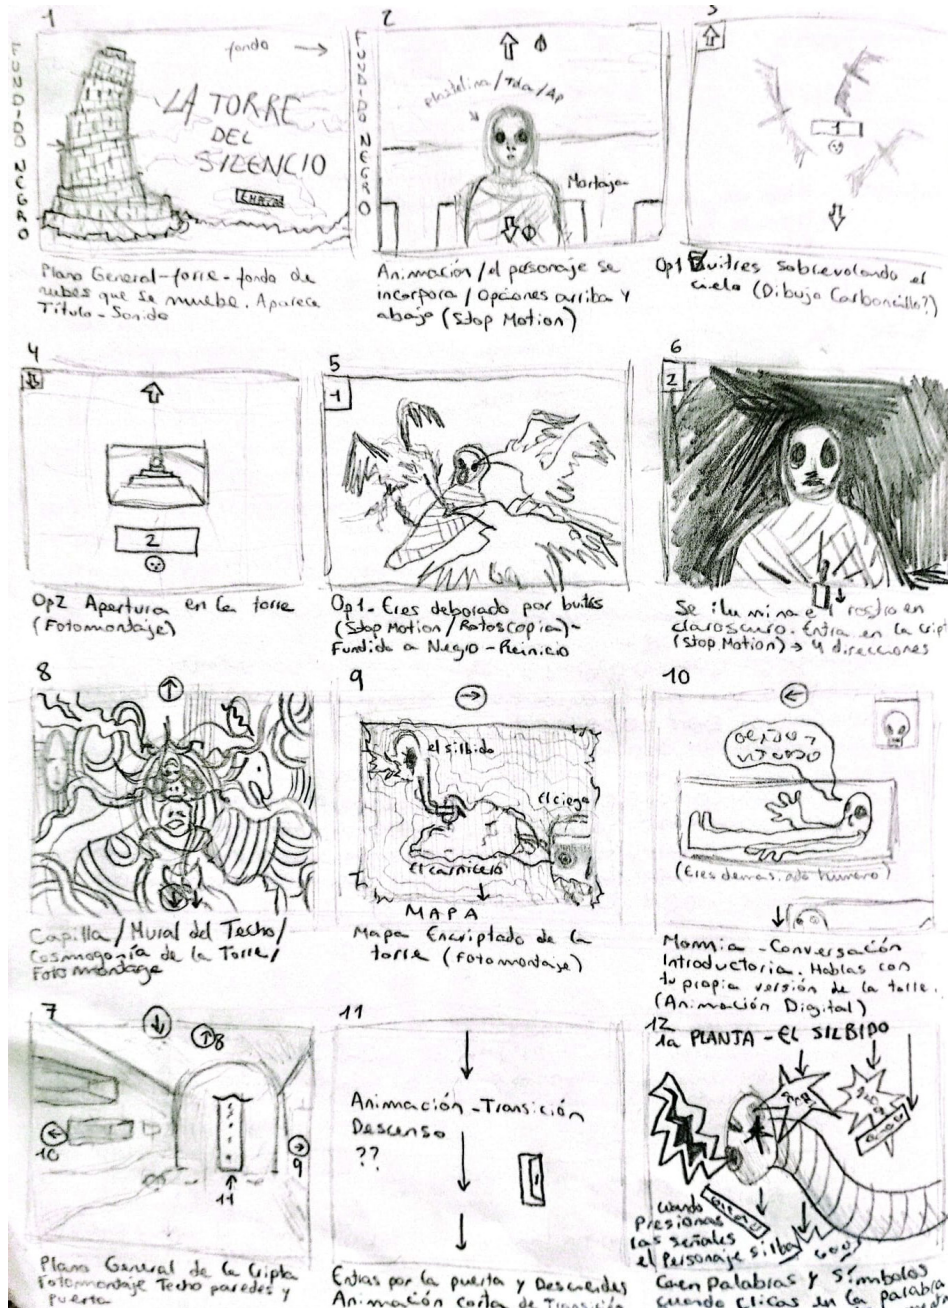 1
FUNDIDO NEGRO
fondo
LA TORRE
DEL
SILENCIO
FUNDIDO NEGRO
Plano General-torre-fondo de
nubes que se muebe. Aparece
Título-Sonido
2
plastelina/Tela/
Mortaja
Animación/el personaje se
incorpora/Opciones arriba y
abajo (Stop Motion)
3
1
Op1 Buitres sobrevolando el
cielo (Dibujo Carboncillo?)
4
2
Op2 Apertura en la torre
(Fotomontaje)
5
1
Op1- Eres deborado por buitres
(Stop Motion/Rotoscopia)-
Fundido a Negro-Reinicio
6
2
Se ilumina el rostro en
claroscuro. Entra en la cript
(Stop Motion) → 4 direcciones
8
Capilla/Mural del Techo/
Cosmogonía de la Torre/
Fotomontaje
9
el silbido
El ciego
El carnicero
MAPA
Mapa Encriptado de la
torre (Fotomontaje)
10
(Eres demasiado humano)
Momia-Conversación
Introductoria. Hablas con
tu propia versión de la talle.
(Animación Digital)
7
8
10
9
11
Plano General de la Cripta
Fotomontaje Techo paredes y
puerta
11
Animación-Transición
Descenso
??
Entras por la puerta y Desciendes
Animación Corta de Transición
12
1a PLANTA - EL SILBIDO
cuando
Presionas
las señales
el Personaje silba
Caen Palabras y Símbolos
cuando clicas en la palabra